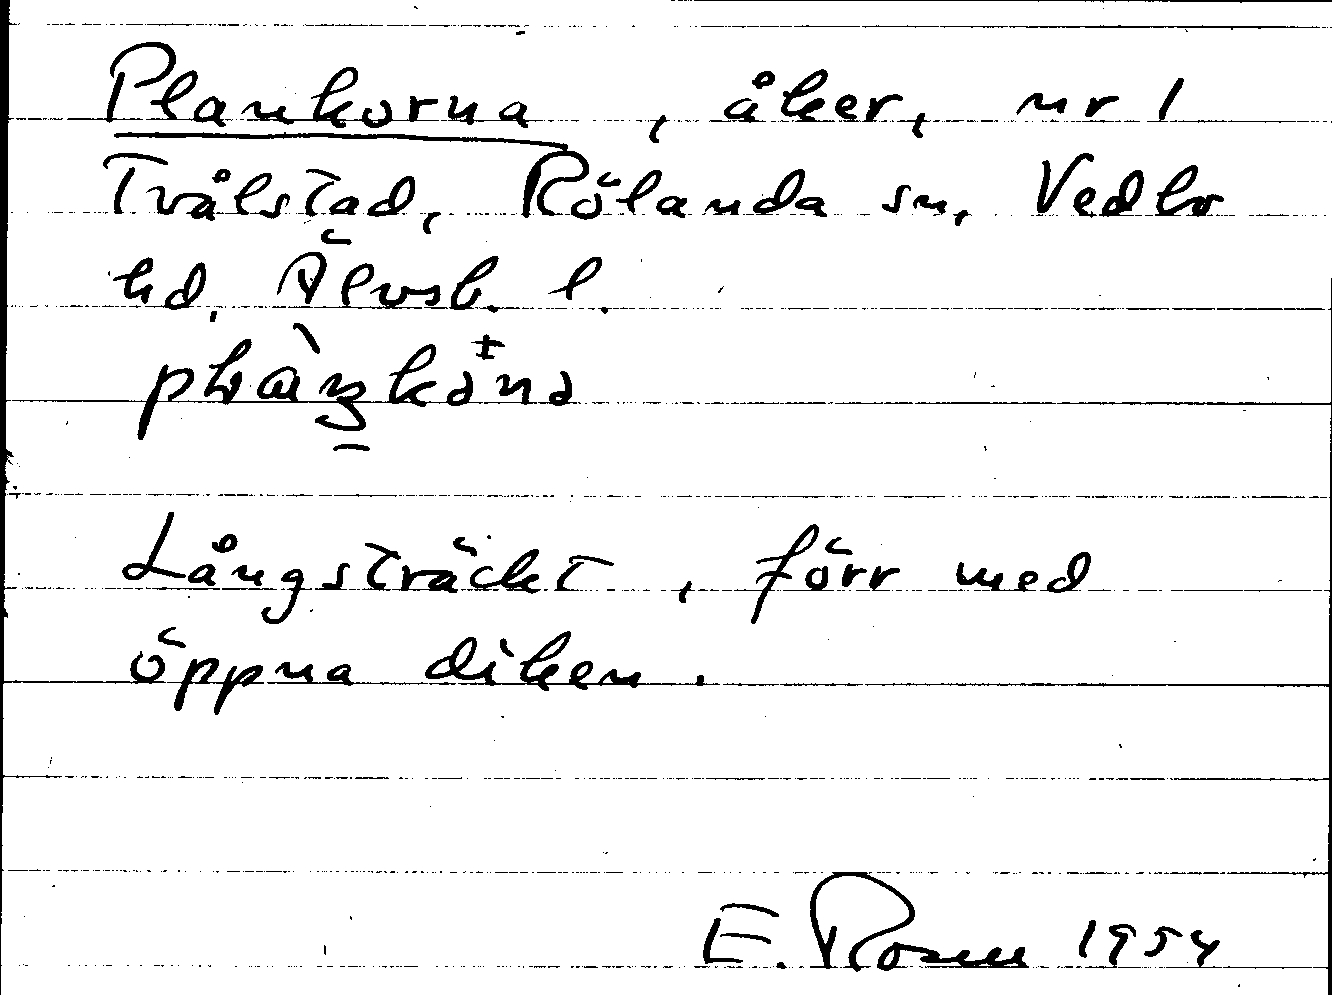 Plankorna, åker, nr 1
Tvålstad, Rölanda sn, Vedbo
hd, Älvsb. l.
Långsträckt, förr med
öppna diken.
E. Rosen 1954